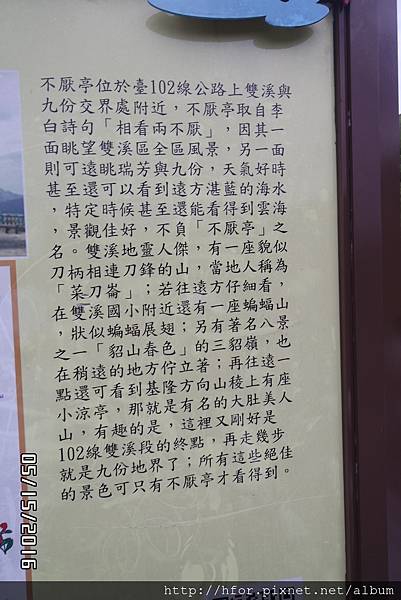 不厭亭位於臺102線公路上雙溪與
九份交界處附近，不厭亭取自李
白詩句「相看兩不厭」，因其一
面眺望雙溪區全區風景，另一面
則可遠眺瑞芳與九份，天氣好時
甚至還可以看到遠方湛藍的海水
，特定時候甚至還能看得到雲海
，景觀佳好，不負「不厭亭」之
名。雙溪地靈人傑，有一座貌似
刀柄相連刀鋒的山，當地人稱為
「菜刀崙」；若往遠方仔細看，
在雙溪國小附近還有一座蝙蝠山
，狀似蝙蝠展翅；另有著名八景
之一「貂山春色」的三貂嶺，也
在稍遠的地方佇立著；再往遠一
點還可看到基隆方向山稜上有座
小涼亭，那就是有名的大肚美人
山，有趣的是，這裡又剛好是
102線雙溪段的終點，再走幾步
就是九份地界了；所有這些絕佳
的景色可只有不厭亭才看得到。
05/15/2016
http://hfor.pixnet.net/album